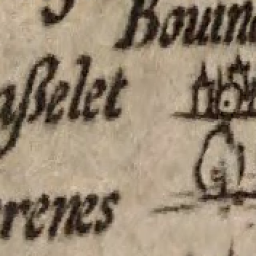 Bouin
aßelet
renes